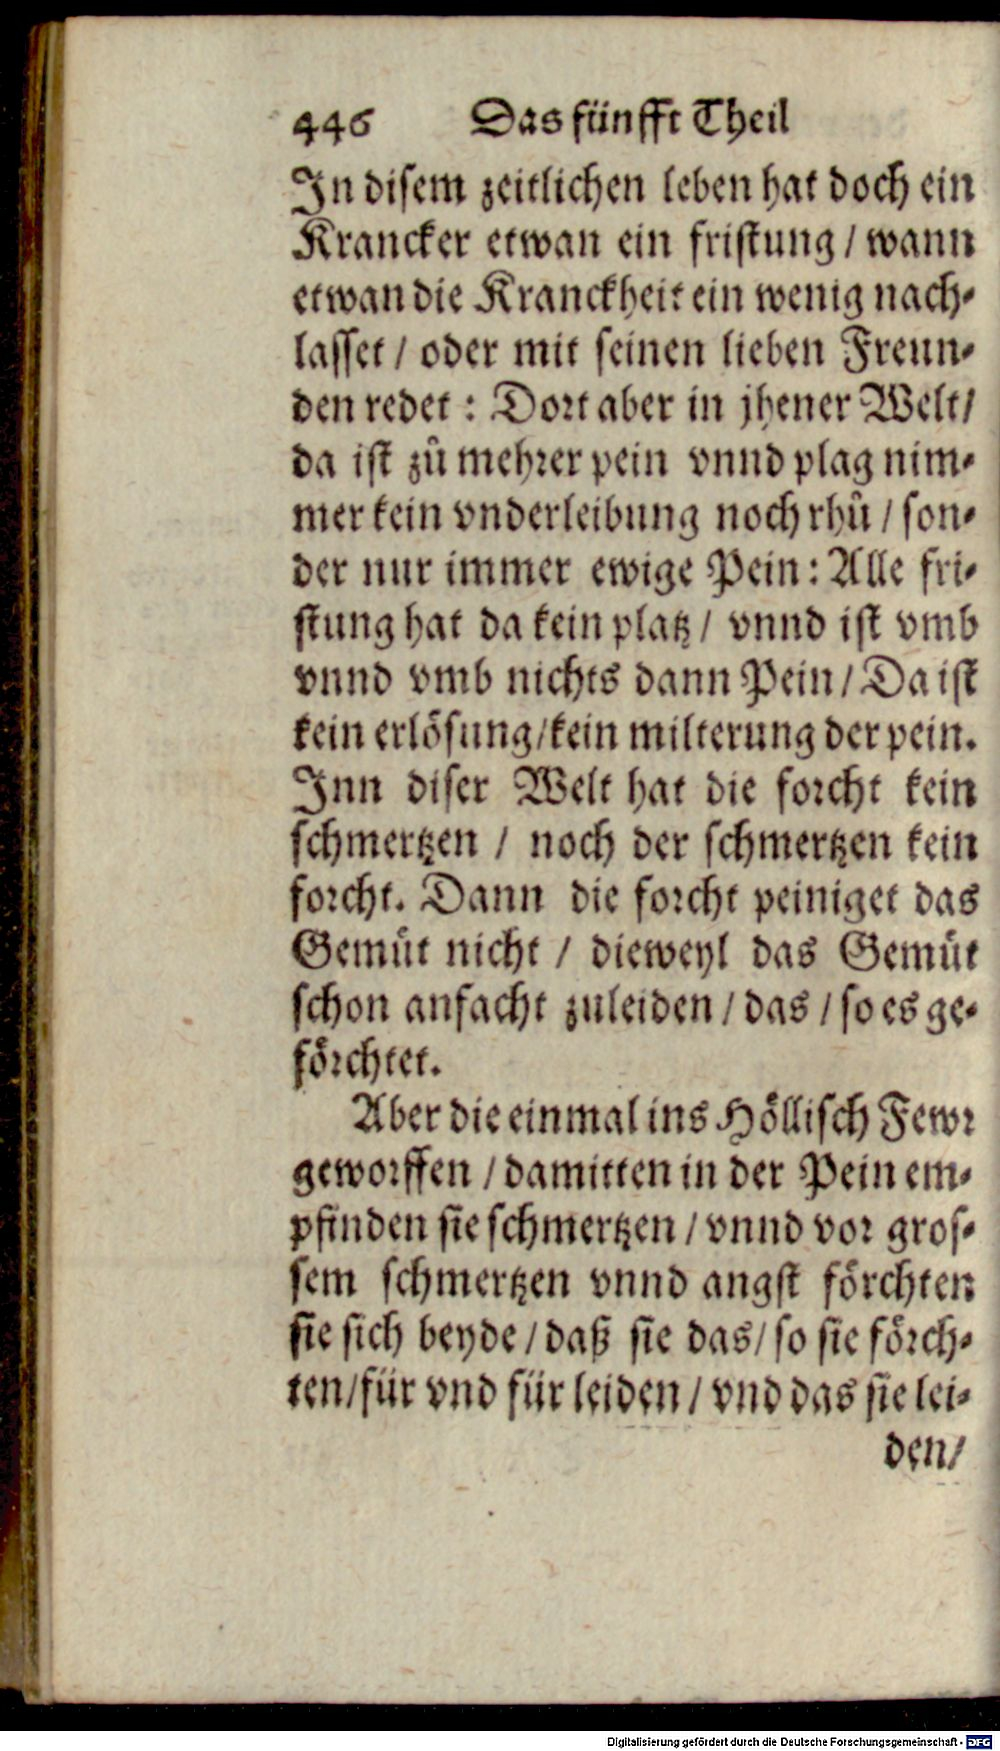 446 Das fünfft Theil
In disem zeitlichen leben hat doch ein
Krancker etwan ein fristung / wann
etwan die Kranckheit ein wenig nach-
lasset / oder mit seinen lieben Freun-
den redet : Dort aber in jhener Welt /
da ist zů mehrer pein vnnd plag nim-
mer kein vnderleibung noch rhů / son-
der nur immer ewige Pein : Alle fri-
stung hat da kein platz / vnnd ist vmb
vnnd vmb nichts dann Pein / Da ist
kein erlösung / kein milterung der pein.
Inn diser Welt hat die forcht kein
schmertzen / noch der schmertzen kein
forcht. Dann die forcht peiniget das
Gemüt nicht / dieweyl das Gemüt
schon anfacht zuleiden / das / so es ge-
förchtet.
Aber die einmal ins Höllisch Fewr
geworffen / damitten in der Pein em-
pfinden sie schmertzen / vnnd vor gros-
sem schmertzen vnnd angst förchten
sie sich beyde / daß sie das / so sie förch-
ten / für vnd für leiden / vnd das sie lei-
den /
Digitalisierung gefördert durch die Deutsche Forschungsgemeinschaft - DFG